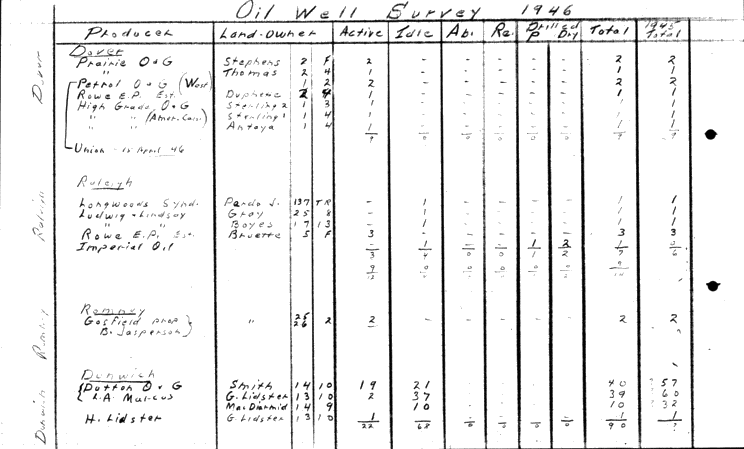 Oil Well Survey 1946
Producer Land-Owner Active Idle Ab. Re. Drilled P Dry Total 1945 Total
Dover
Prairie O & G Stephens 2 F 2 - - - - - 2 2
" Thomas 2 4 1 - - - - - 1 1
Petrol O & G (West) 1 2 2 - - - - - 2 2
Rowe E.P. Est. Duphene 2 4 1 - - - - - 1 1
High Grade O & G Sterling 2 1 3 1 - - - - - 1 1
" " (Amer. Can.) Sterling 1 1 4 1 - - - - - 1 1
" " Antaya 1 4 1 - - - - - 1 1
9 0 0 0 0 0 9 9
Union - 15 April 46
Raleigh
Longwoods Synd. Pardo J. 137 TR - 1 - - - - 1 1
Ludwig & Lindsay Gray 25 8 - 1 - - - - 1 1
" " Boyes 17 13 - 1 - - - - 1 1
Rowe E.P. Est. Bruette 5 F 3 - - - - - 3 3
Imperial Oil - 1 - - 1 2 1 0
3 4 0 0 1 2 7 6
Romney
Gasfield prop } " 25 2 2 - - - - - 2 2
B. Jasperson } 26
Dunwich
Dutton O & G Smith 14 10 19 21 - - - - 40 57
L.A. Marcus G. Lidster 13 10 2 37 - - - - 39 60
MacDiarmid 14 9 10 - - - - 10 32
H. Lidster G Lidster 13 10 1 - - - - 1 1
22 68 0 0 0 0 90
Dover
Raleigh
Romney
Dunwich